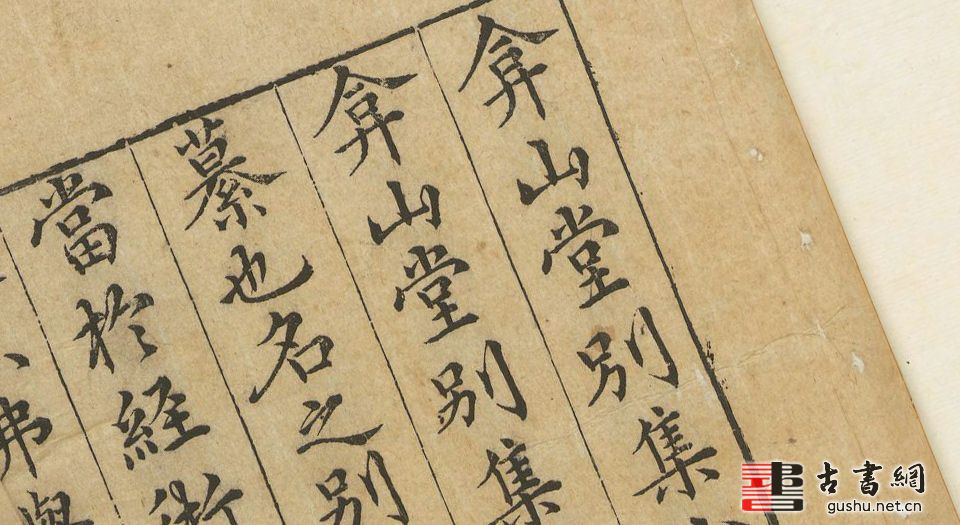 弇山堂別集
弇山堂別集
纂也名之別
當於経術
弗與
古書網
gushu.net.cn